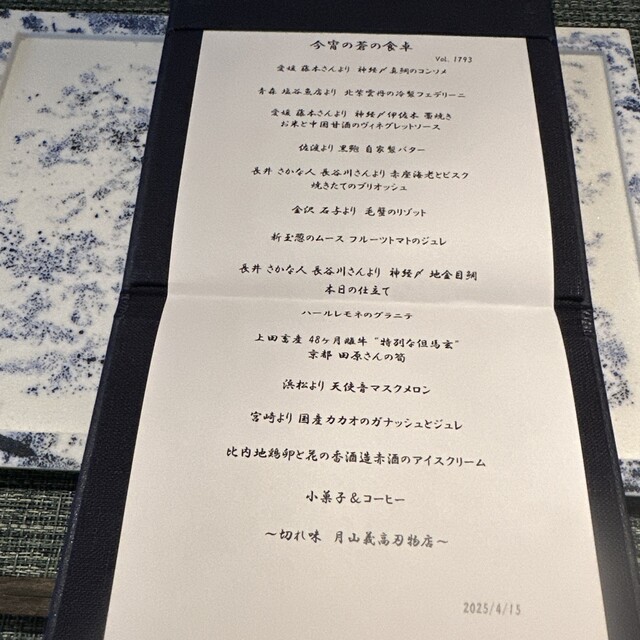 今宵の蒼の食卓
Vol. 1793
愛媛 藤本さんより 神経〆真鯛のコンソメ
青森 塩谷魚店より 北紫雲丹の冷製フェデリーニ
愛媛 藤本さんより 神経〆伊佐木 藁焼き
お米と中国甘酒のヴィネグレットソース
佐渡より 黒鮑 自家製バター
長井 さかな人 長谷川さんより 赤座海老とビスク
焼きたてのブリオッシュ
金沢 石与より 毛蟹のリゾット
新玉葱のムース フルーツトマトのジュレ
長井 さかな人 長谷川さんより 神経〆 地金目鯛
本日の仕立て
ハールレモネのグラニテ
上田畜産 48ヶ月雌牛 "特別な但馬玄"
京都 田原さんの筍
浜松より 天使音マスクメロン
宮崎より 国産カカオのガナッシュとジュレ
比内地鶏卵と花の香酒造赤酒のアイスクリーム
小菓子&コーヒー
～切れ味 月山義高刃物店～
2025/4/15